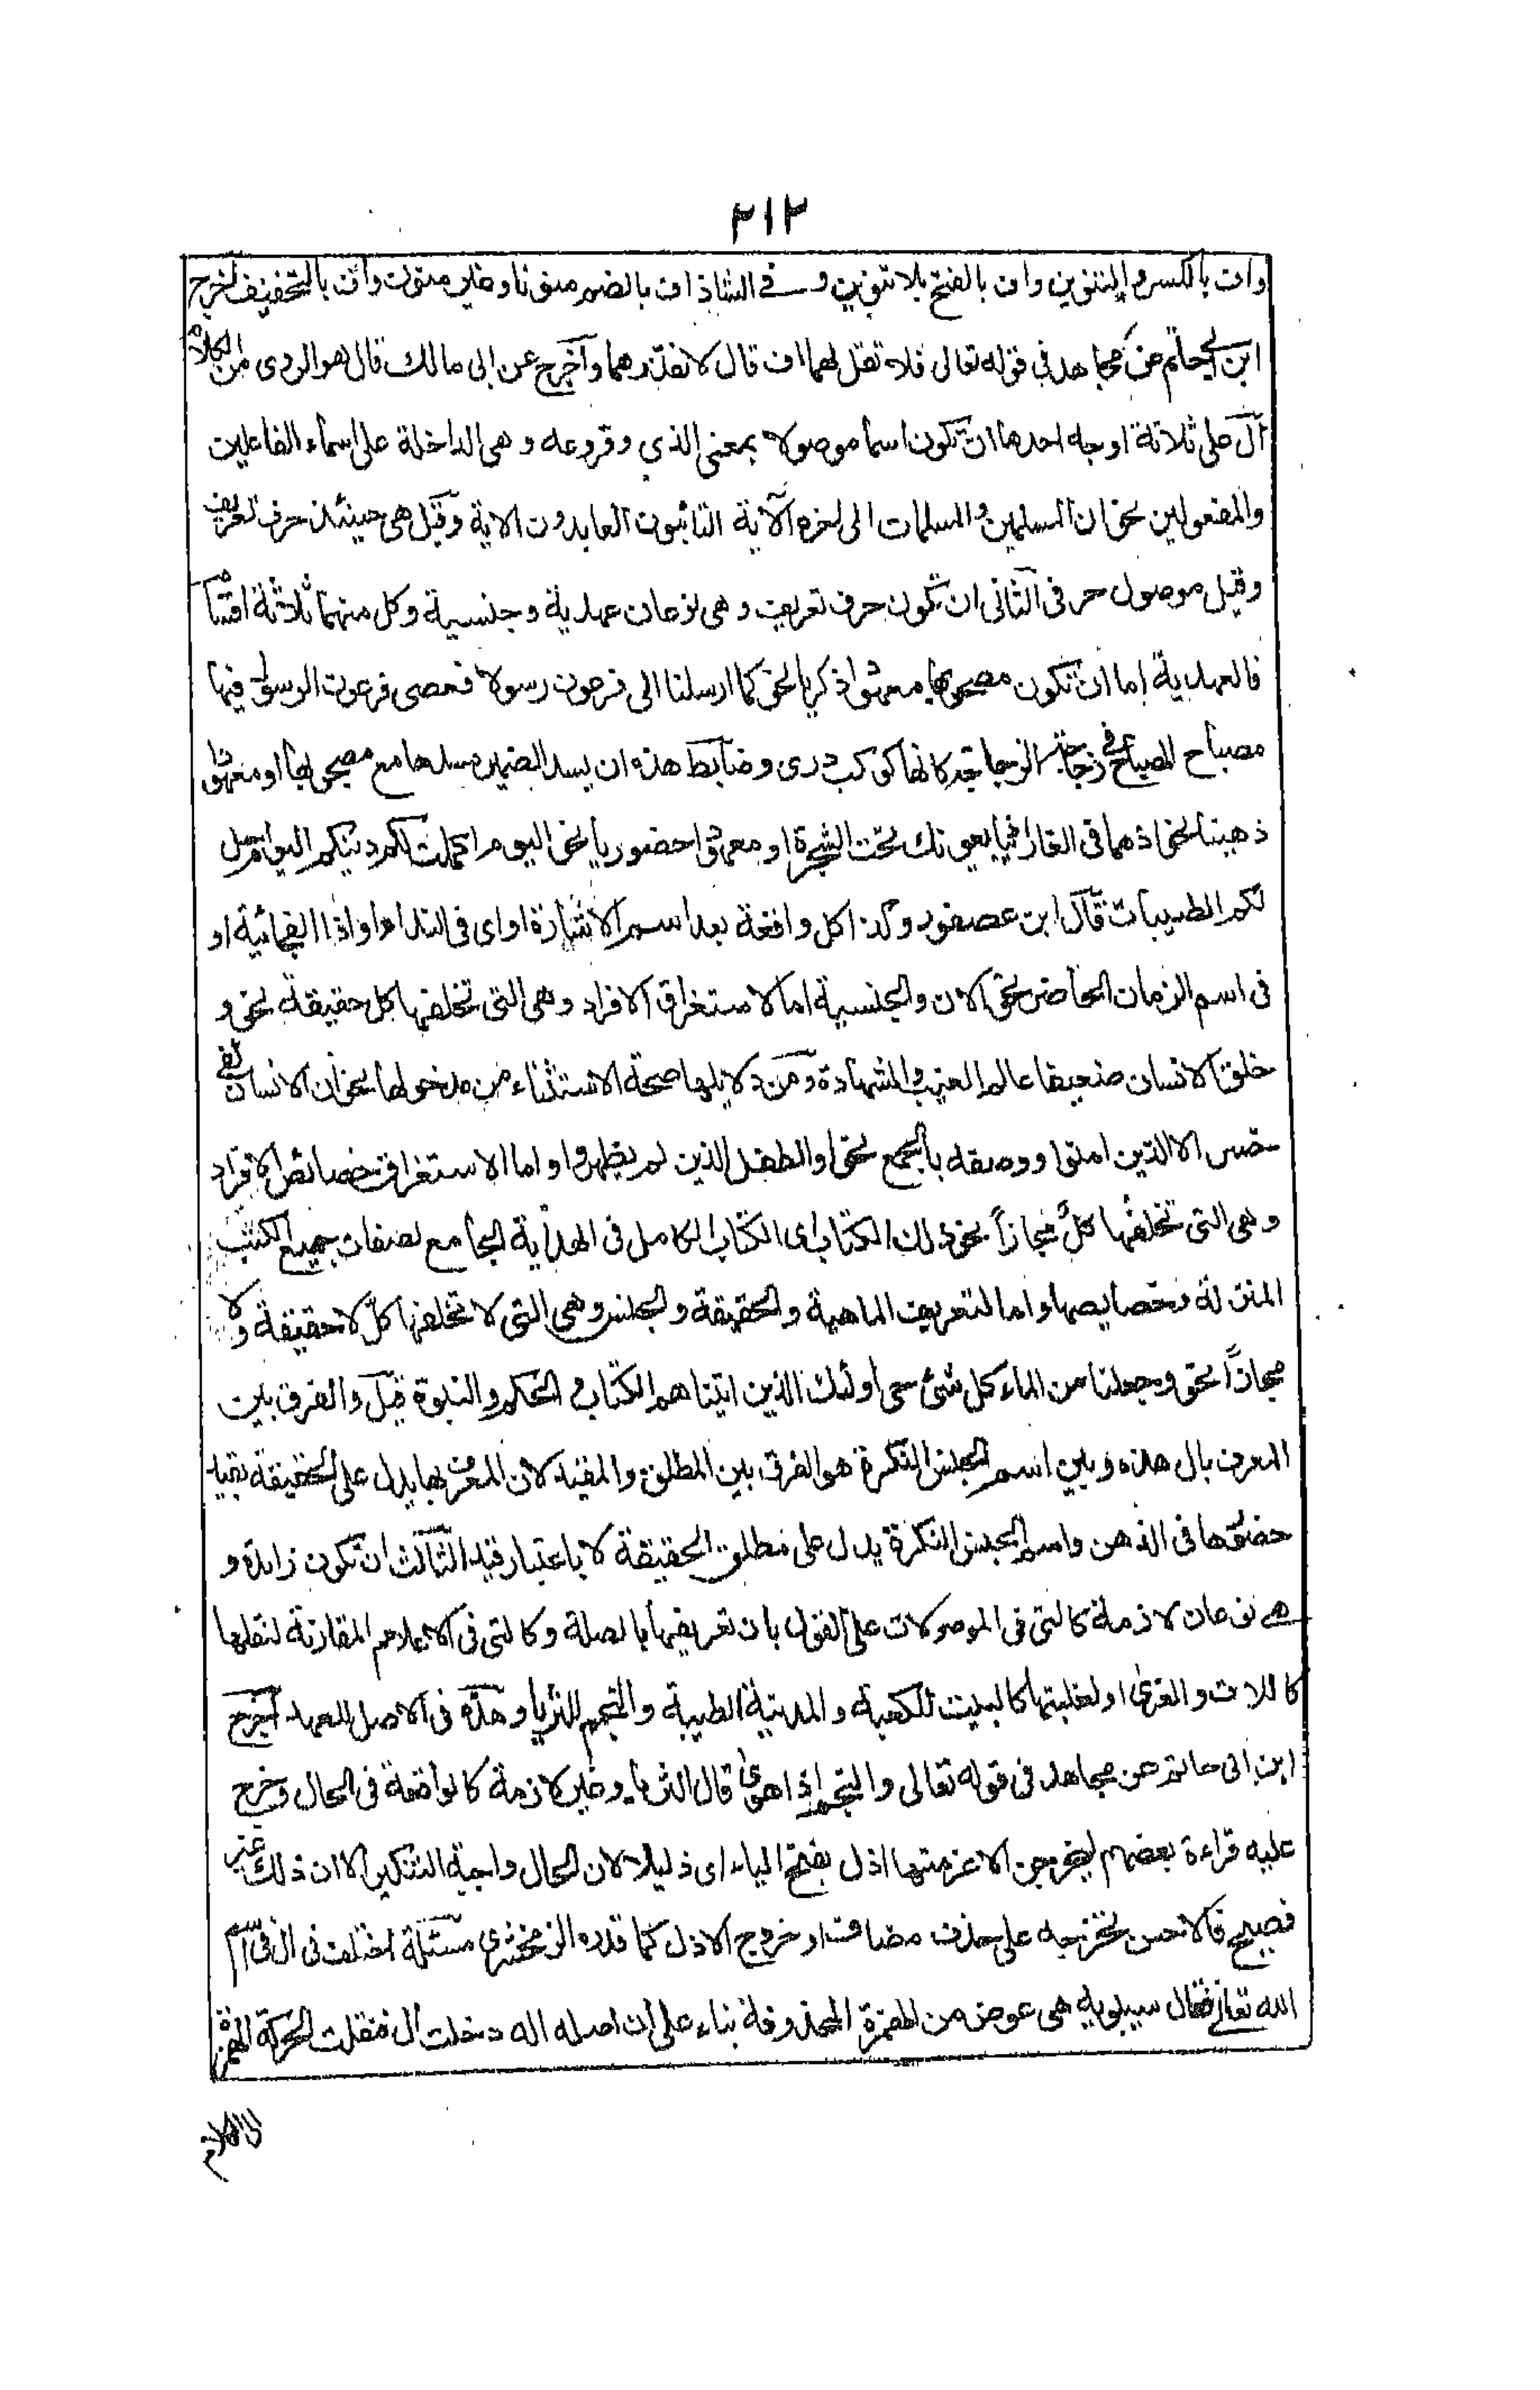 ٢١٢
واف بالكسر والتنوين واف بالفتح بلا تنوين و فى الشاذ اف بالضم منونا وغير منون واف بالتخفيف اخرج
ابن ابى حاتم عن مجاهد فى قوله تعالى فلا تقل لهما اف قال لا تقذرهما واخرج عن ابى مالك قال هو الردى من الكلام
ال على ثلاثة اوجه احدها ان تكون اسما موصولا بمعنى الذي وفروعه وهى الداخلة على اسماء الفاعلين
والمفعولين نحو ان المسلمين والمسلمات الى اخره الآية التائبون العابدون الاية وقيل هى حينئذ حرف تعريف
وقيل موصول حرفى الثانى ان تكون حرف تعريف وهى نوعان عهدية وجنسية وكل منهما ثلاثة اقسام
فالعهدية اما ان تكون مصحوبها معهودا ذكريا نحو كما ارسلنا الى فرعون رسولا فعصى فرعون الرسول فيها
مصباح المصباح فى زجاجة الزجاجة كانها كوكب درى وضابط هذه ان يسد الضمير مسدها مع مصحوبها او معهودا
ذهنيا نحو اذ هما فى الغار اذ يبايعونك تحت الشجرة او معهودا حضوريا نحو اليوم اكملت لكم دينكم اليوم احل
لكم الطيبات قال ابن عصفور وكذا كل واقعة بعد اسم الاشارة او اى فى النداء او اذا الفجائية او
فى اسم الزمان الحاضر نحو الان والجنسية اما لاستغراق الافراد وهى التى تخلفها كل حقيقة نحو و
خلق الانسان ضعيفا عالم الغيب والشهادة ومن دلايلها صحة الاستثناء من مدخولها نحو ان الانسان لفى
خسر الا الذين امنوا ووصفه بالجمع نحو او الطفل الذين لم يظهروا واما لاستغراق خصائص الافراد
وهى التى تخلفها كل مجازاً نحو ذلك الكتاب اى الكتاب الكامل فى الهداية الجامع لصفات جميع الكتب
المنزلة وخصايصها واما لتعريف الماهية والحقيقة والجنس وهى التى لا تخلفها كل لا حقيقة ولا
مجازاً نحو وجعلنا من الماء كل شئ حى اولئك الذين اتيناهم الكتاب والحكم والنبوة قيل والفرق بين
المعرف بال هذه وبين اسم الجنس النكرة هو الفرق بين المطلق والمقيد لان المعرف بها يدل على الحقيقة بقيد
حضورها فى الذهن واسم الجنس النكرة يدل على مطلق الحقيقة لا باعتبار قيد الثالث ان تكون زايدة و
هى نوعان لازمة كالتى فى الموصولات على القول بان تعريفها بالصلة وكالتى فى الاعلام المقارنة لنقلها
كاللات والعزى او لغلبتها كالبيت للكعبة والمدينة الطيبة والنجم للثريا وهذه فى الاصل للعهد اخرج
ابن ابى حاتم عن مجاهد فى قوله تعالى والنجم اذا هوى قال الثريا وغير لازمة كالواقعة فى الحال وخرج
عليه قراءة بعضهم ليخرجن الاعز منها اذل بفتح الياء اى ذليلا لان الحال واجبة التنكير الا ان ذلك غير
فصيح فالاحسن تخريجه على حذف مضاف او خروج الاذل كما قدره الزمخشرى مسئلة اختلف فى ال فى اسم
الله تعالى فقال سيبويه هى عوض من الهمزة المحذوفة بناء على ان اصله اله دخلت ال فنقلت الحركة الهمزة